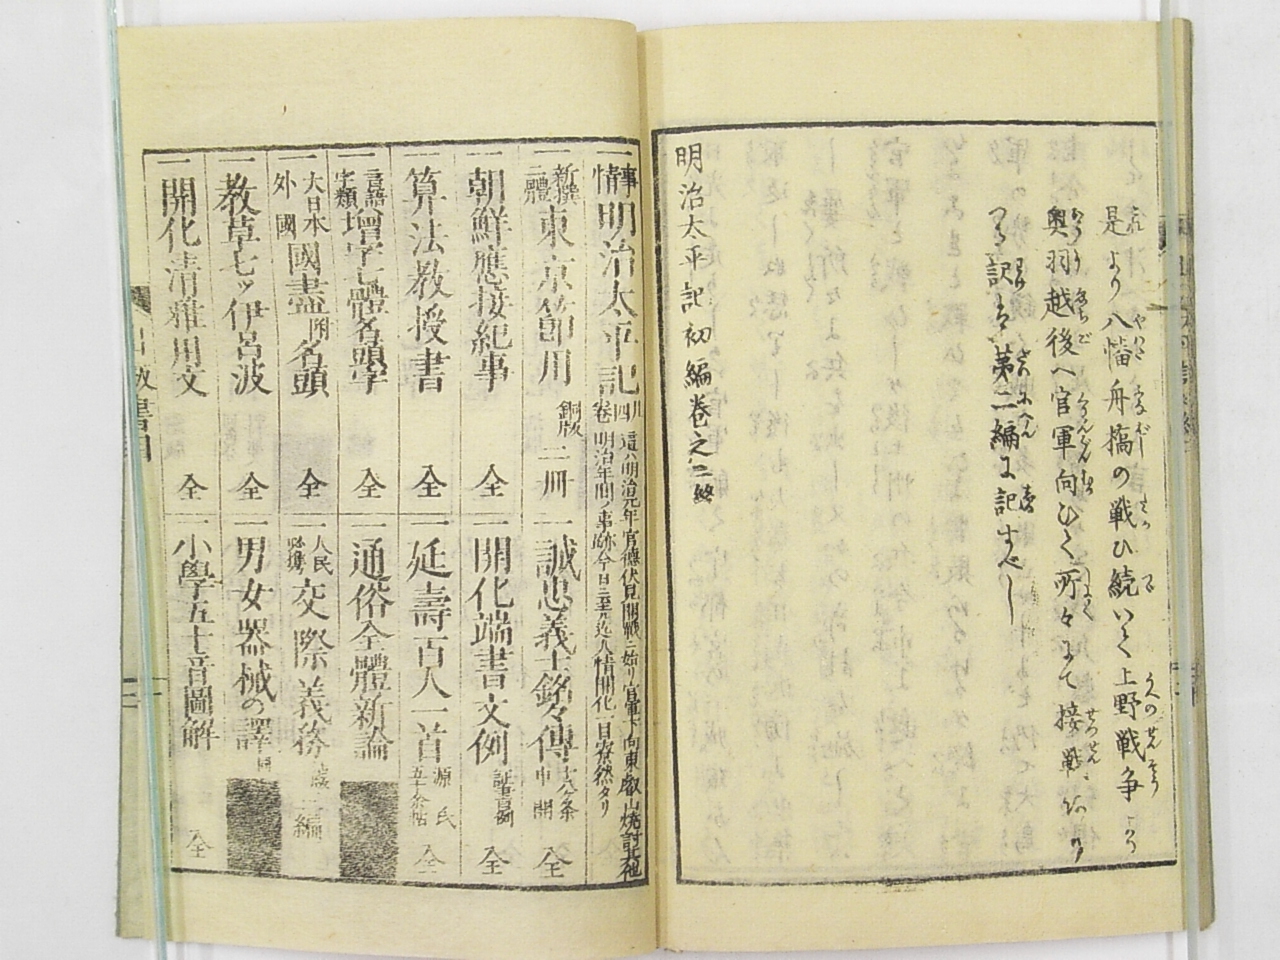 是より八幡舟橋の戦ひ続いて上野戦争より
奥羽越後へ官軍向ひて所々にて接戦
訳は第二編に記すべし
明治太平記初編巻之二終
事情明治太平記 四巻
這ハ明治元年官德伏見開戦ニ始リ官軍下向東叡山焼討其他
明治年間ノ事跡今日ニ至ル迄人情開化一目瞭然タリ
一新撰二體東京節用 銅版 二冊
一誠忠義士銘々傳 全
一朝鮮應接紀事 全
一開化端書文例 全
一算法教授書 全
一延壽百人一首 源氏 五十余帖 全
一言語字類增字七體名頭字 全
一通俗全體新論
一大日本外國國盡 附名頭 全
一人民必携交際義務 二編
一教草七ッ伊呂波 全
一男女器械の譯
一開化清雅用文 全
一小學五十音圖解 全